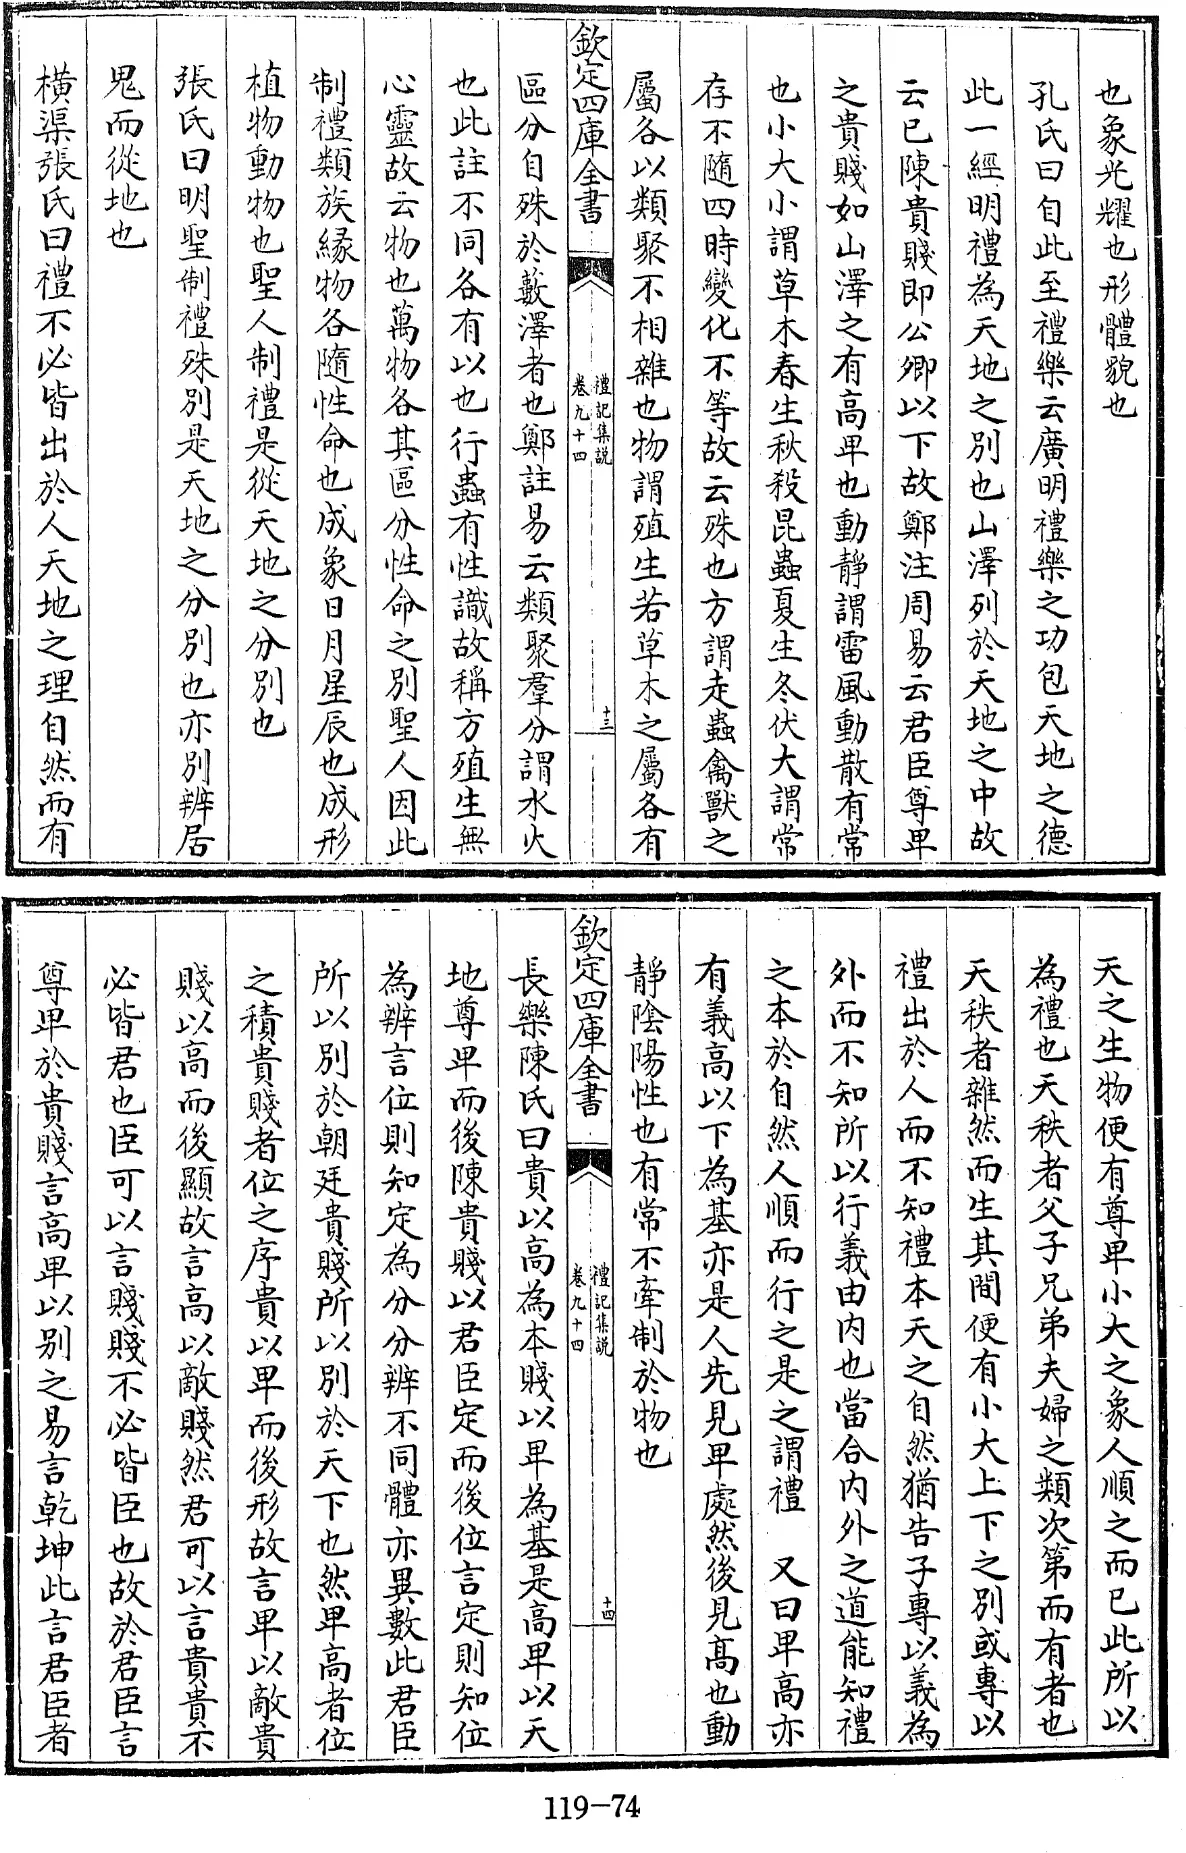 也象光耀也形體貌也
孔氏曰自此至禮樂云廣明禮樂之功包天地之德
此一經明禮為天地之別也山澤列於天地之中故
云已陳貴賤即公卿以下故鄭注周易云君臣尊卑
之貴賤如山澤之有高卑也動靜謂雷風動散有常
也小大小謂草木春生秋殺昆蟲夏生冬伏大謂常
存不隨四時變化不等故云殊也方謂走蟲禽獸之
屬各以類聚不相雜也物謂殖生若草木之屬各有
欽定四庫全書
禮記集說
卷九十四
十三
區分自殊於藪澤者也鄭註易云類聚羣分謂水火
也此註不同各有以也行蟲有性識故稱方殖生無
心靈故云物也萬物各其區分性命之別聖人因此
制禮類族緣物各隨性命也成象日月星辰也成形
植物動物也聖人制禮是從天地之分別也
張氏曰明聖制禮殊別是天地之分別也亦別辨居
鬼而從地也
橫渠張氏曰禮不必皆出於人天地之理自然而有
天之生物便有尊卑小大之象人順之而已此所以
為禮也天秩者父子兄弟夫婦之類次第而有者也
天秩者雜然而生其間便有小大上下之別或專以
禮出於人而不知禮本天之自然猶告子專以義為
外而不知所以行義由内也當合内外之道能知禮
之本於自然人順而行之是之謂禮　又曰卑高亦
有義高以下為基亦是人先見卑處然後見高也動
靜陰陽性也有常不牽制於物也
欽定四庫全書
禮記集說
卷九十四
十四
長樂陳氏曰貴以高為本賤以卑為基是高卑以天
地尊卑而後陳貴賤以君臣定而後位言定則知位
為辨言位則知定為分分辨不同體亦異數此君臣
所以別於朝廷貴賤所以別於天下也然卑高者位
之積貴賤者位之序貴以卑而後形故言卑以敵貴
賤以高而後顯故言高以敵賤然君可以言貴貴不
必皆君也臣可以言賤賤不必皆臣也故於君臣言
尊卑於貴賤言高卑以別之易言乾坤此言君臣者
119-74